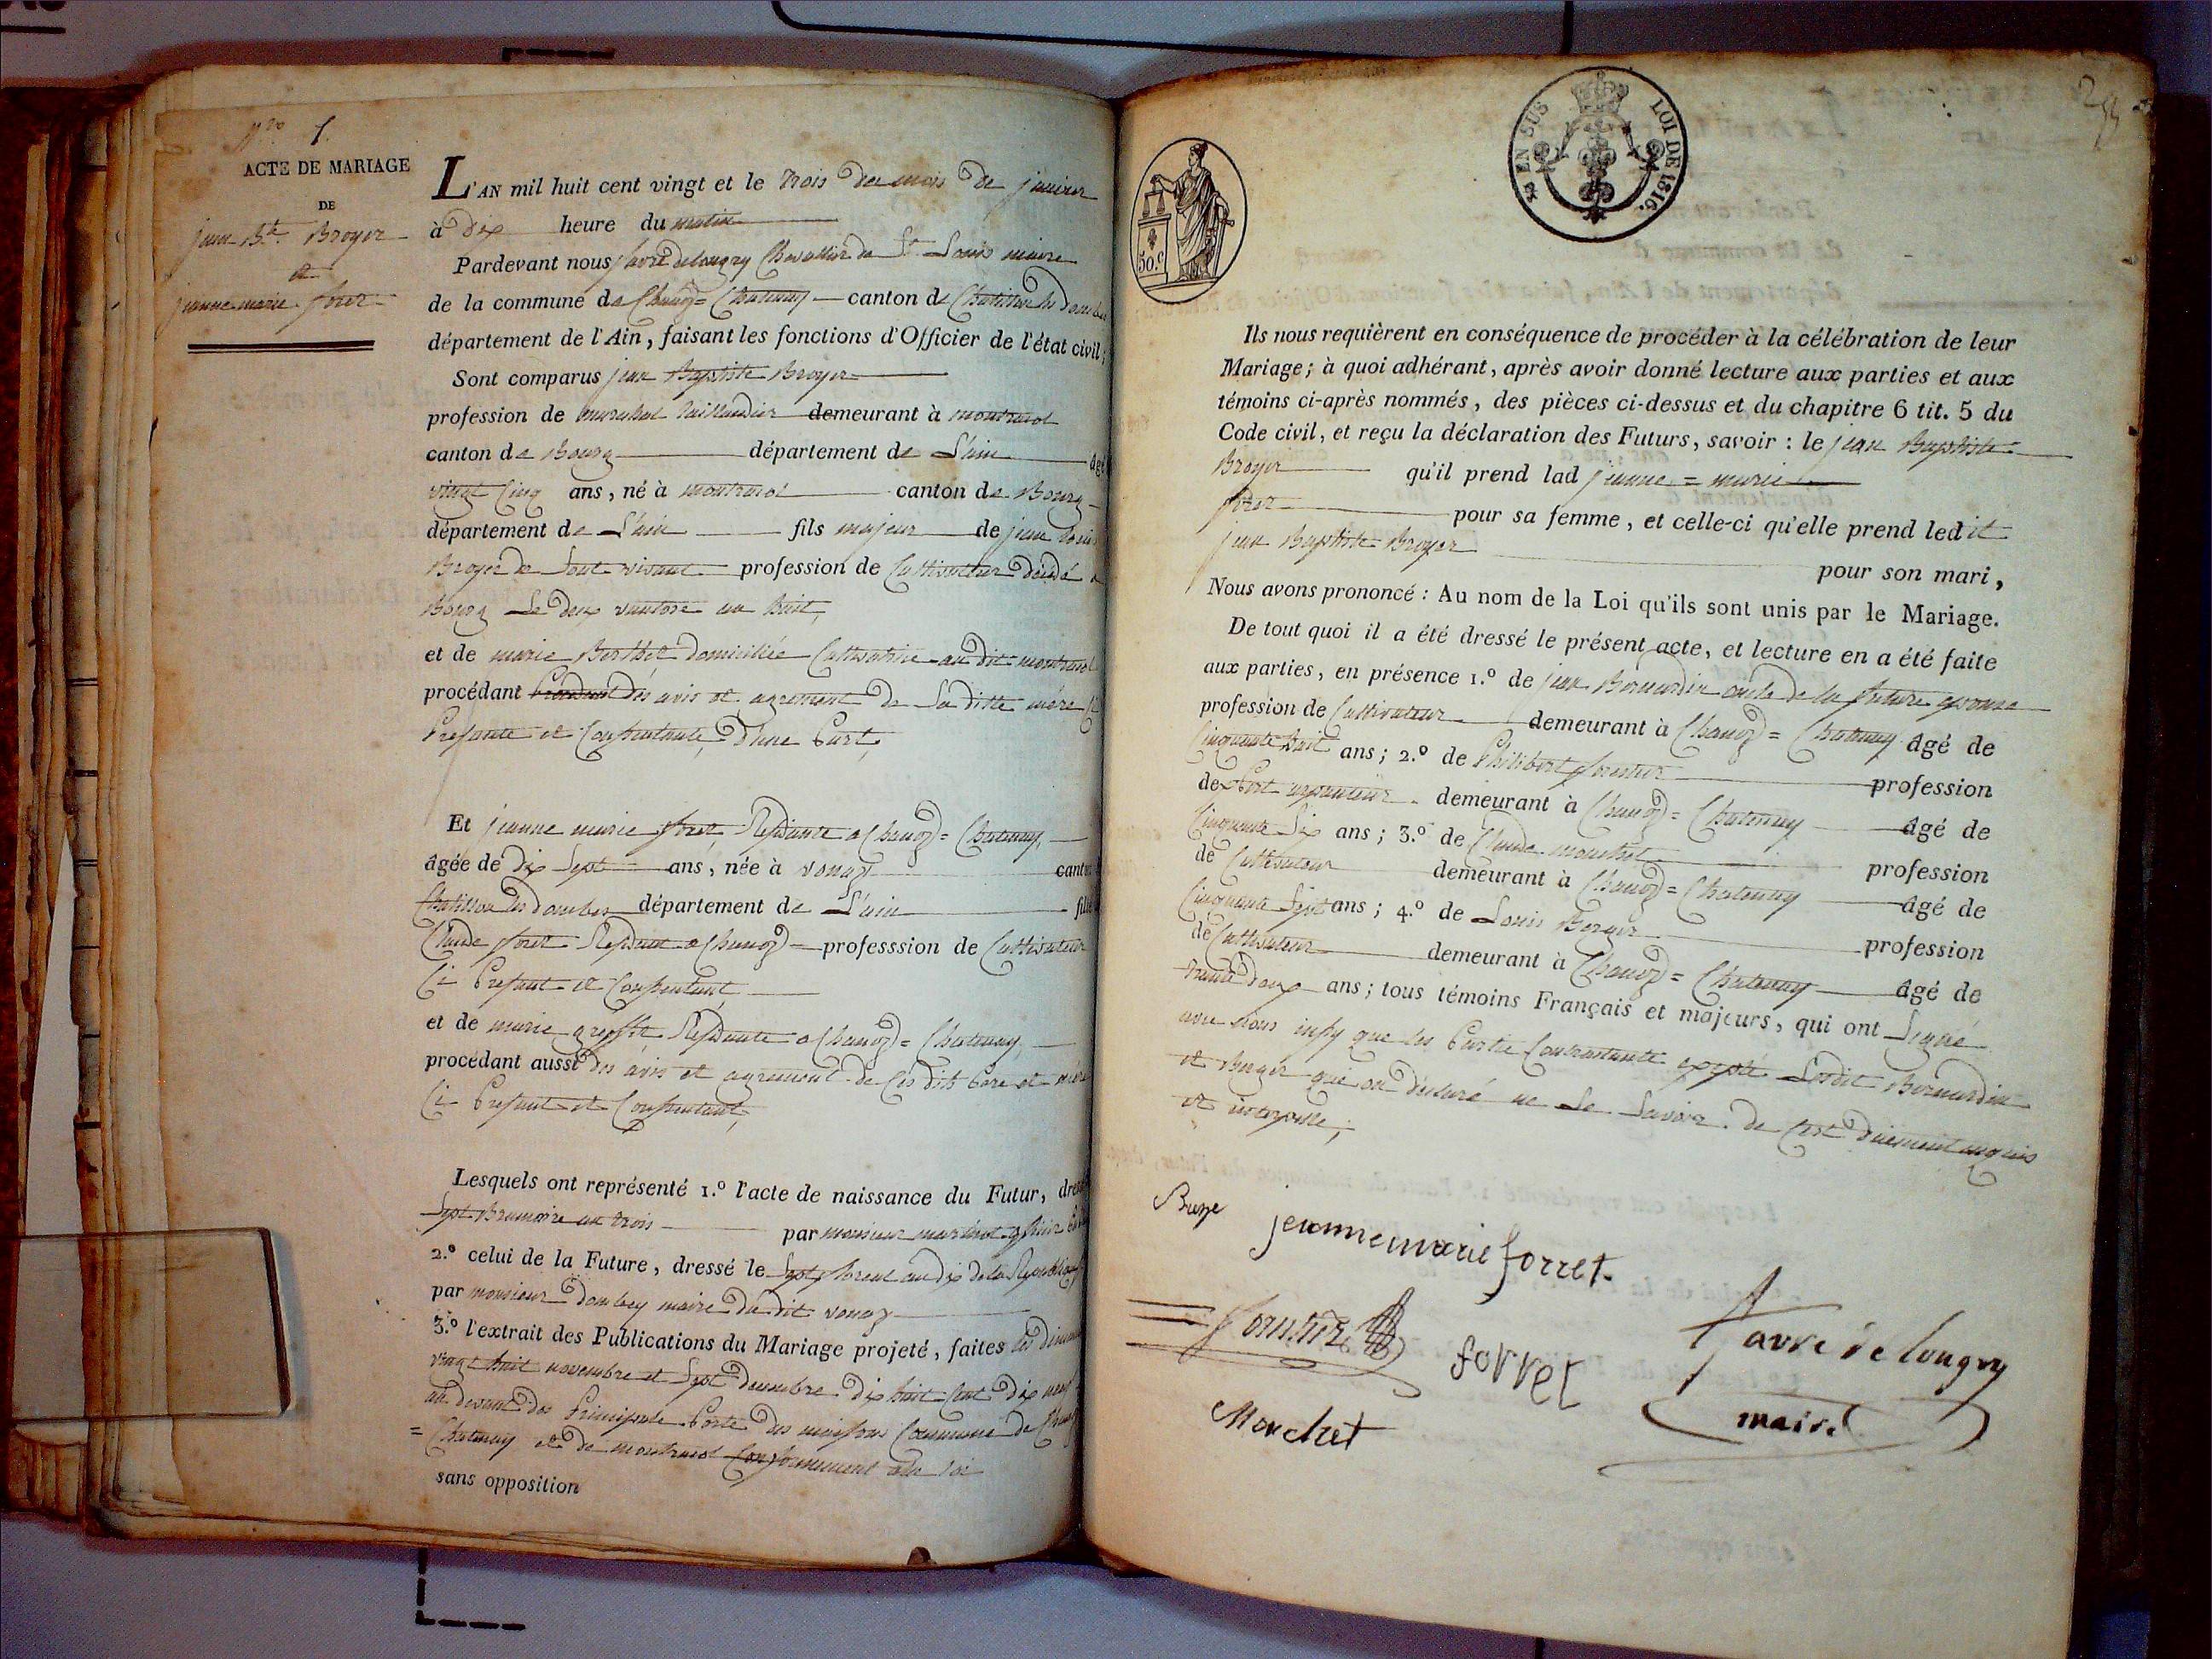 Nro 1.
ACTE DE MARIAGE
DE
jean Bte. Broyer
et
jeanne marie foret
L'AN mil huit cent vingt et le trois du mois de janvier
à dix heure du matin
Pardevant nous favre delongry Chevallier de St Louis maire
de la commune de Chanoz = Chatenay canton de Chatillon les dombes
département de l'Ain, faisant les fonctions d'Officier de l'état civil;
Sont comparus jean Baptiste Broyer
profession de marechal taillandier demeurant à montracol
canton de Bourg département de L'ain âgé
vingt Cinq ans, né à montracol canton de Bourg
département de L'ain fils majeur de jean
Broyer de Sont vivant profession de Cultivateur décédé a
Bourg Le deux vantose an huit,
et de marie Berthet domiciliée Cultivatrice au dit montracol
procédant des avis et agrement de La ditte mére Ci
Presante et Consentante, d'une Part,
Et jeanne marie foret Residante a Chanoz = Chatenay,
âgée de dix Sept ans, née à vonaz canton
Chatillon les dombes département de L'ain fille
Claude foret Residant a Chanoz professsion de Cultivateur
Ci Presant et Consentant
et de marie Residante a Chanoz = Chatenay,
procédant aussi des avis et agrement de Ces dits Pere et mére
Ci Presant et Consentant,
Lesquels ont représenté 1.º l'acte de naissance du Futur, dressé
Sept Brumaire an trois par monsieur
2.º celui de la Future, dressé le Sept floreal an dix de la Republique
par monsieur dombey maire du dit vonaz
3.º l'extrait des Publications du Mariage projeté, faites les
vingt huit novembre et Sept decembre dix huit Cent dix neuf
au devant des Principale Porte des maisons Commune de Chanoz
= Chatenay et de montracol Conformement a la loi
sans opposition
29
EN SUS
LOI DE 1816.
50.c
Ils nous requièrent en conséquence de procéder à la célébration de leur
Mariage; à quoi adhérant, après avoir donné lecture aux parties et aux
témoins ci-après nommés, des pièces ci-dessus et du chapitre 6 tit. 5 du
Code civil, et reçu la déclaration des Futurs, savoir : le jean Baptiste
Broyer qu'il prend lad jeanne = marie
foret pour sa femme, et celle-ci qu'elle prend ledit
jean Baptiste Broyer pour son mari,
Nous avons prononcé : Au nom de la Loi qu'ils sont unis par le Mariage.
De tout quoi il a été dressé le présent acte, et lecture en a été faite
aux parties, en présence 1.º de jean Bernardin oncle de la future epouse
profession de Cultivateur demeurant à Chanoz = Chatenay âgé de
Cinquante huit ans; 2.º de Philibert profession
de demeurant à Chanoz = Chatenay âgé de
Cinquante Six ans; 3.º de Claude profession
de Cultivateur demeurant à Chanoz = Chatenay âgé de
Cinquante Sept ans; 4.º de Louis Berger profession
de Cultivateur demeurant à Chanoz = Chatenay âgé de
trante deux ans; tous témoins Français et majeurs, qui ont Signé
avec nous que les Partie Contractante Lesdit Bernardin
et Berger qui on declaré ne Le Savoir de Cest duement enquis
et
jeannemarie forret.
forret
favre de longry
maire